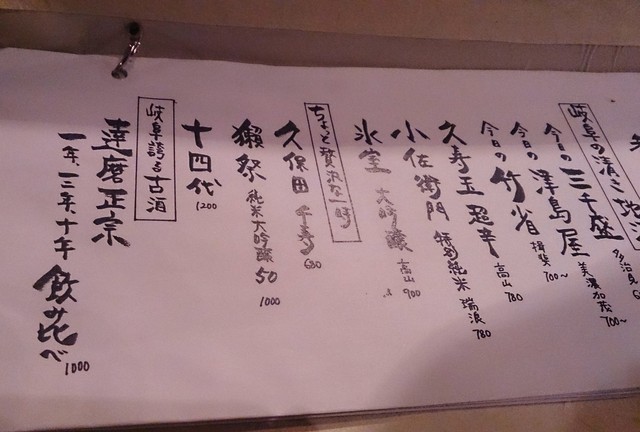 岐阜の清々地酒
今日の三千盛 多治見
今日の津島屋 美濃加茂 700~
今日の竹雀 揖斐 700~
久寿玉 超辛 高山 780
小左衛門 特別純米 瑞浪 780
氷室 大吟醸 高山 900
ちょっと贅沢な一時
久保田 千寿 680
獺祭 純米大吟醸 50 1000
十四代 1200
岐阜誇る古酒
達磨正宗
一年、三年、十年 飲み比べ 1000